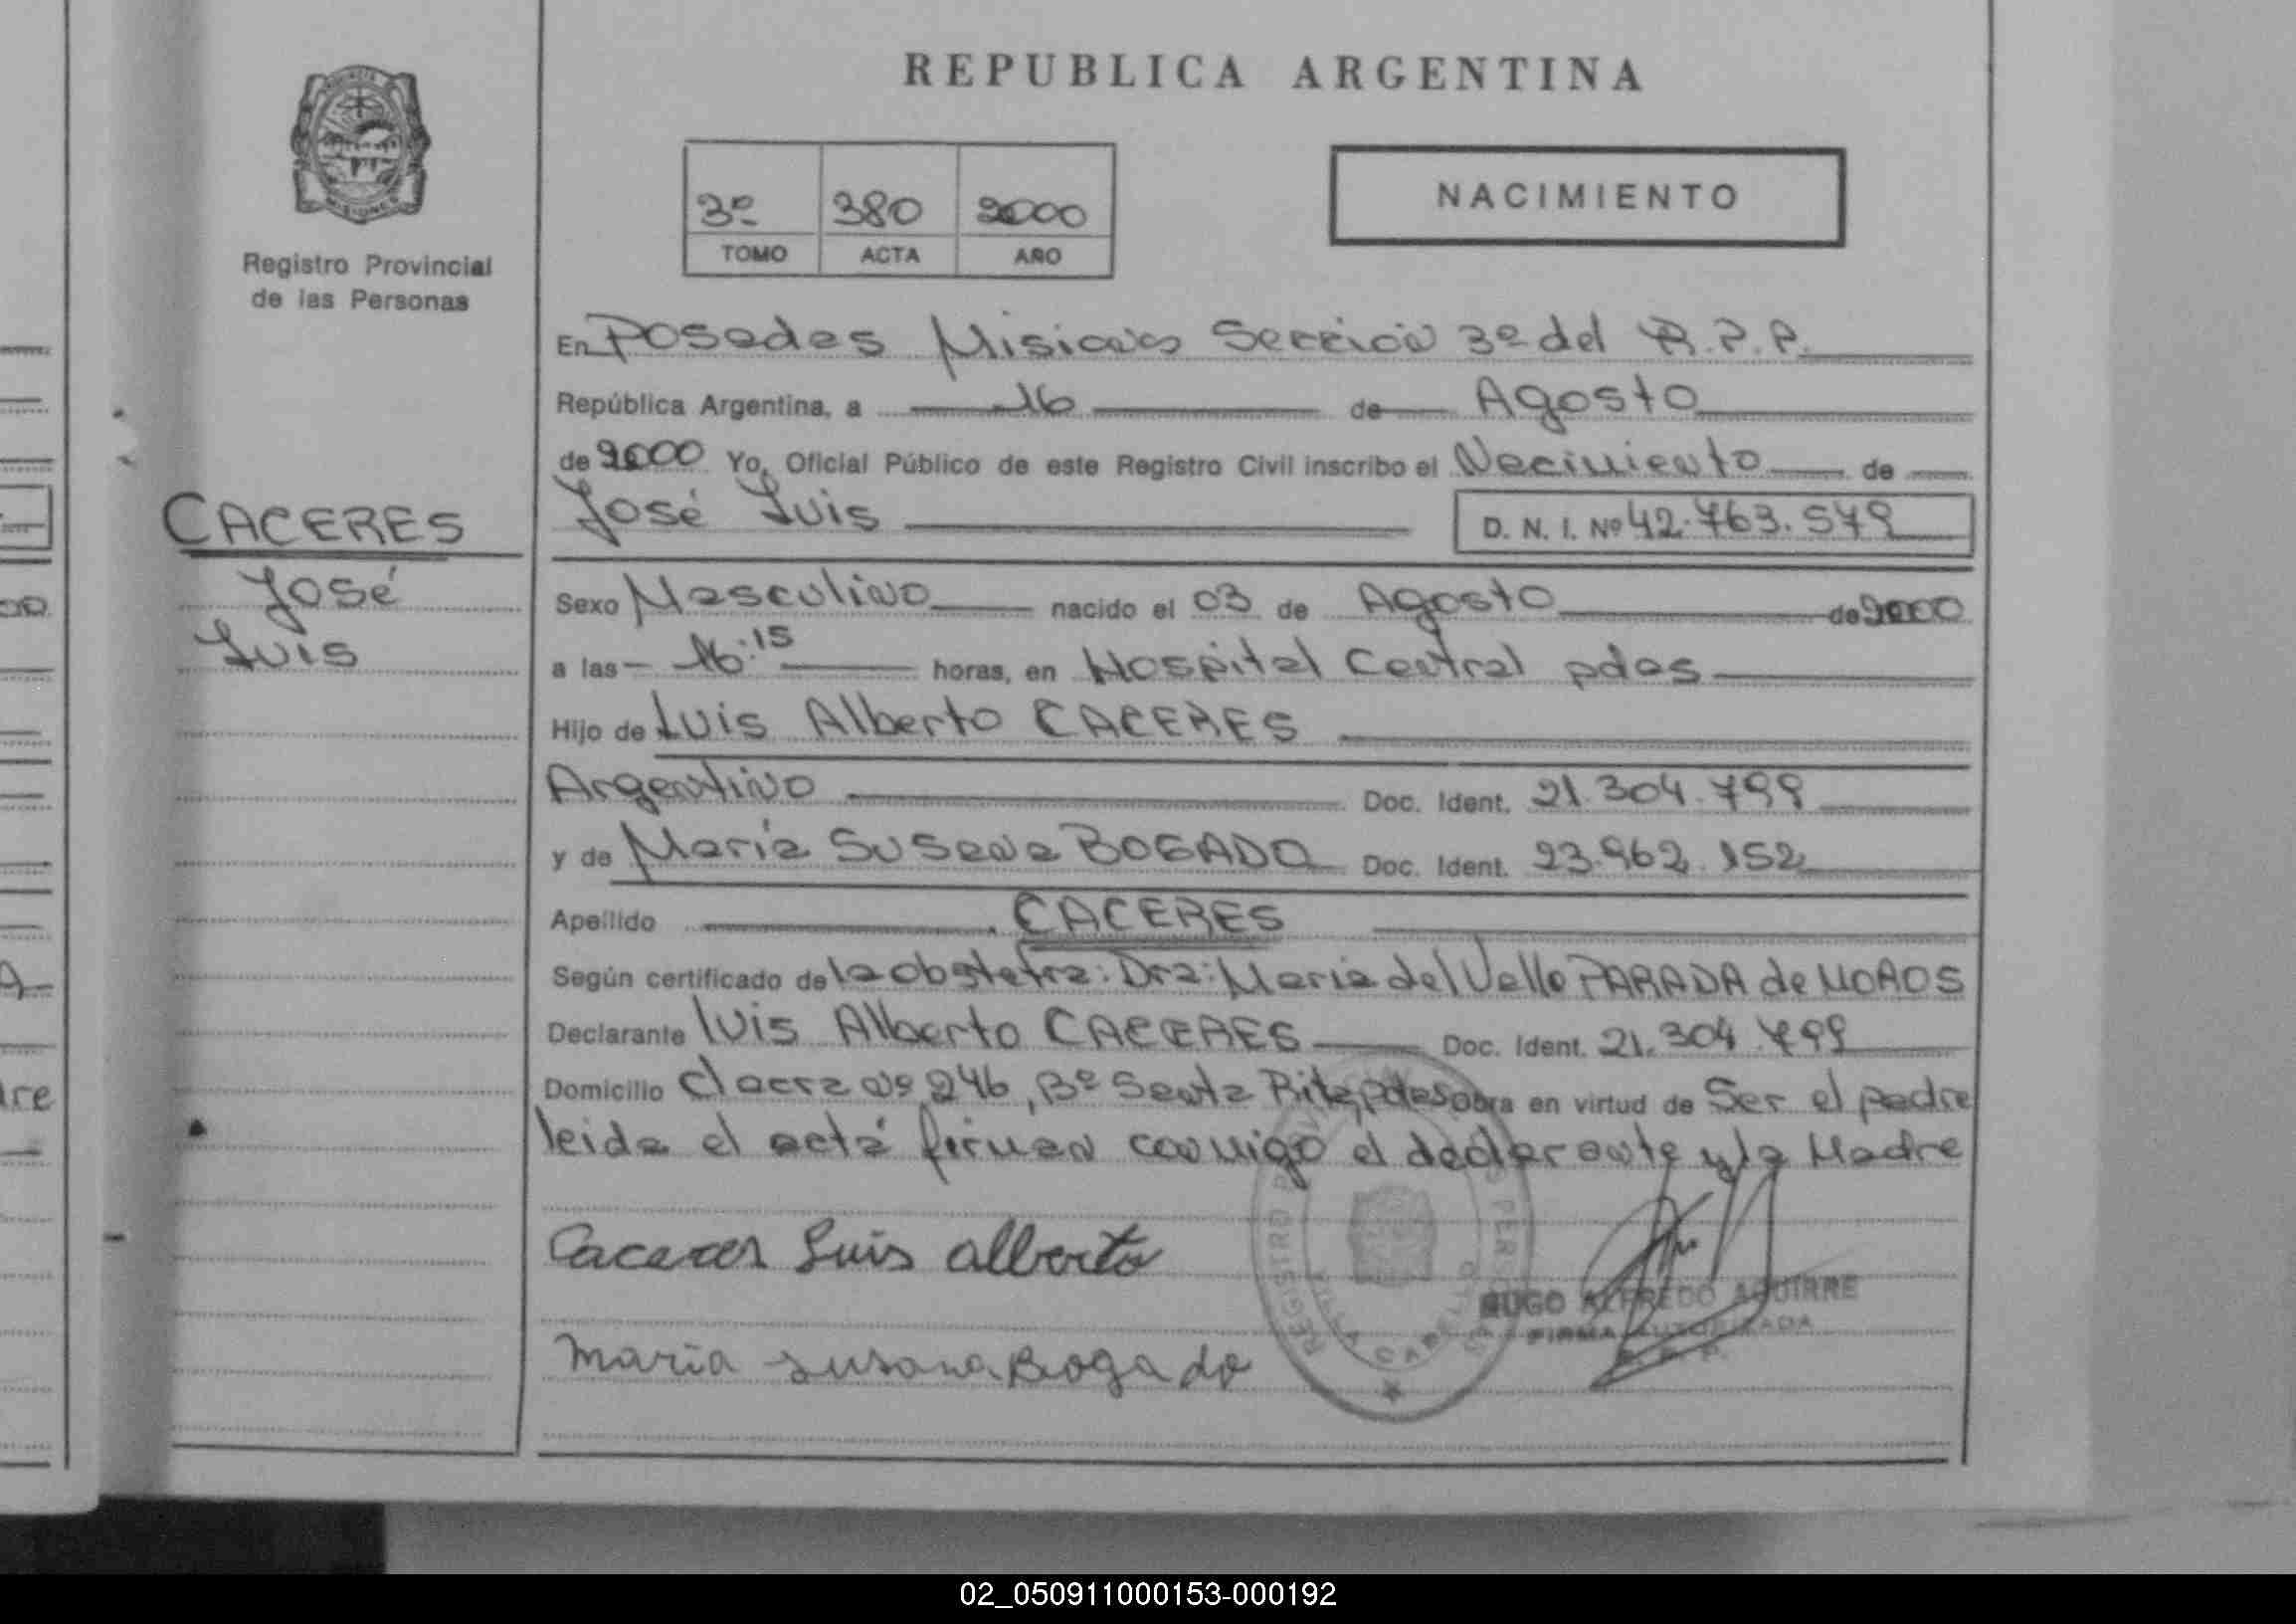 REPUBLICA ARGENTINA
MISIONES
Registro Provincial
de las Personas
3º 380 2000
TOMO ACTA AÑO
NACIMIENTO
En Posadas Misiones Sección 3º del R.P.P.
República Argentina, a 16 de Agosto
de 2000 Yo, Oficial Público de este Registro Civil inscribo el Nacimiento de
José Luis D. N. I. Nº 42.763.579
CACERES
José
Luis
Sexo Masculino nacido el 03 de Agosto de 2000
a las 16:15 horas, en Hospital Central pdas
Hijo de Luis Alberto CACERES
Argentino Doc. Ident. 21.304.799
y de María Susana BOGADO Doc. Ident. 23.962.152
Apellido CACERES
Según certificado de la obstetra: Dra: María del Valle PARADA de
Declarante Luis Alberto CACERES Doc. Ident. 21.304.799
Domicilio Chacra Nº 246, Bº Santa Rita, pdas obra en virtud de Ser el padre
leída el acta firman conmigo el declarante y la Madre
Caceres Luis alberto
HUGO ALFREDO AGUIRRE
FIRMA AUTORIZADA
R. P. P.
Maria Susana Bogado
02_050911000153-000192